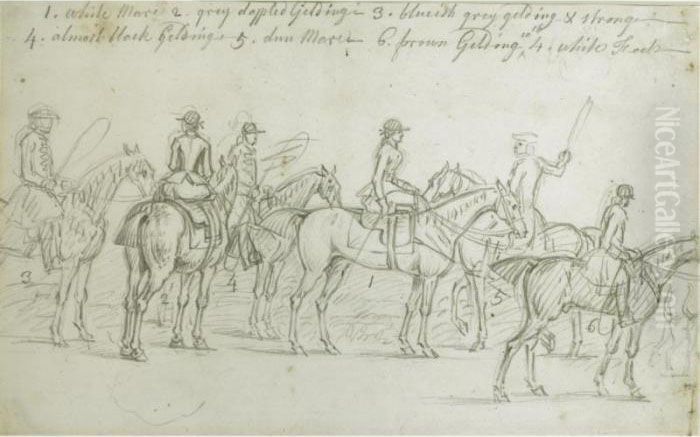 1. white Mare 2. grey dappled Gelding 3. blueish grey gelding & strong
4. almost black Gelding 5. dun Mare 6. brown Gelding with 4 white Feet
3
2
4
1
5
6
NiceArtGallery